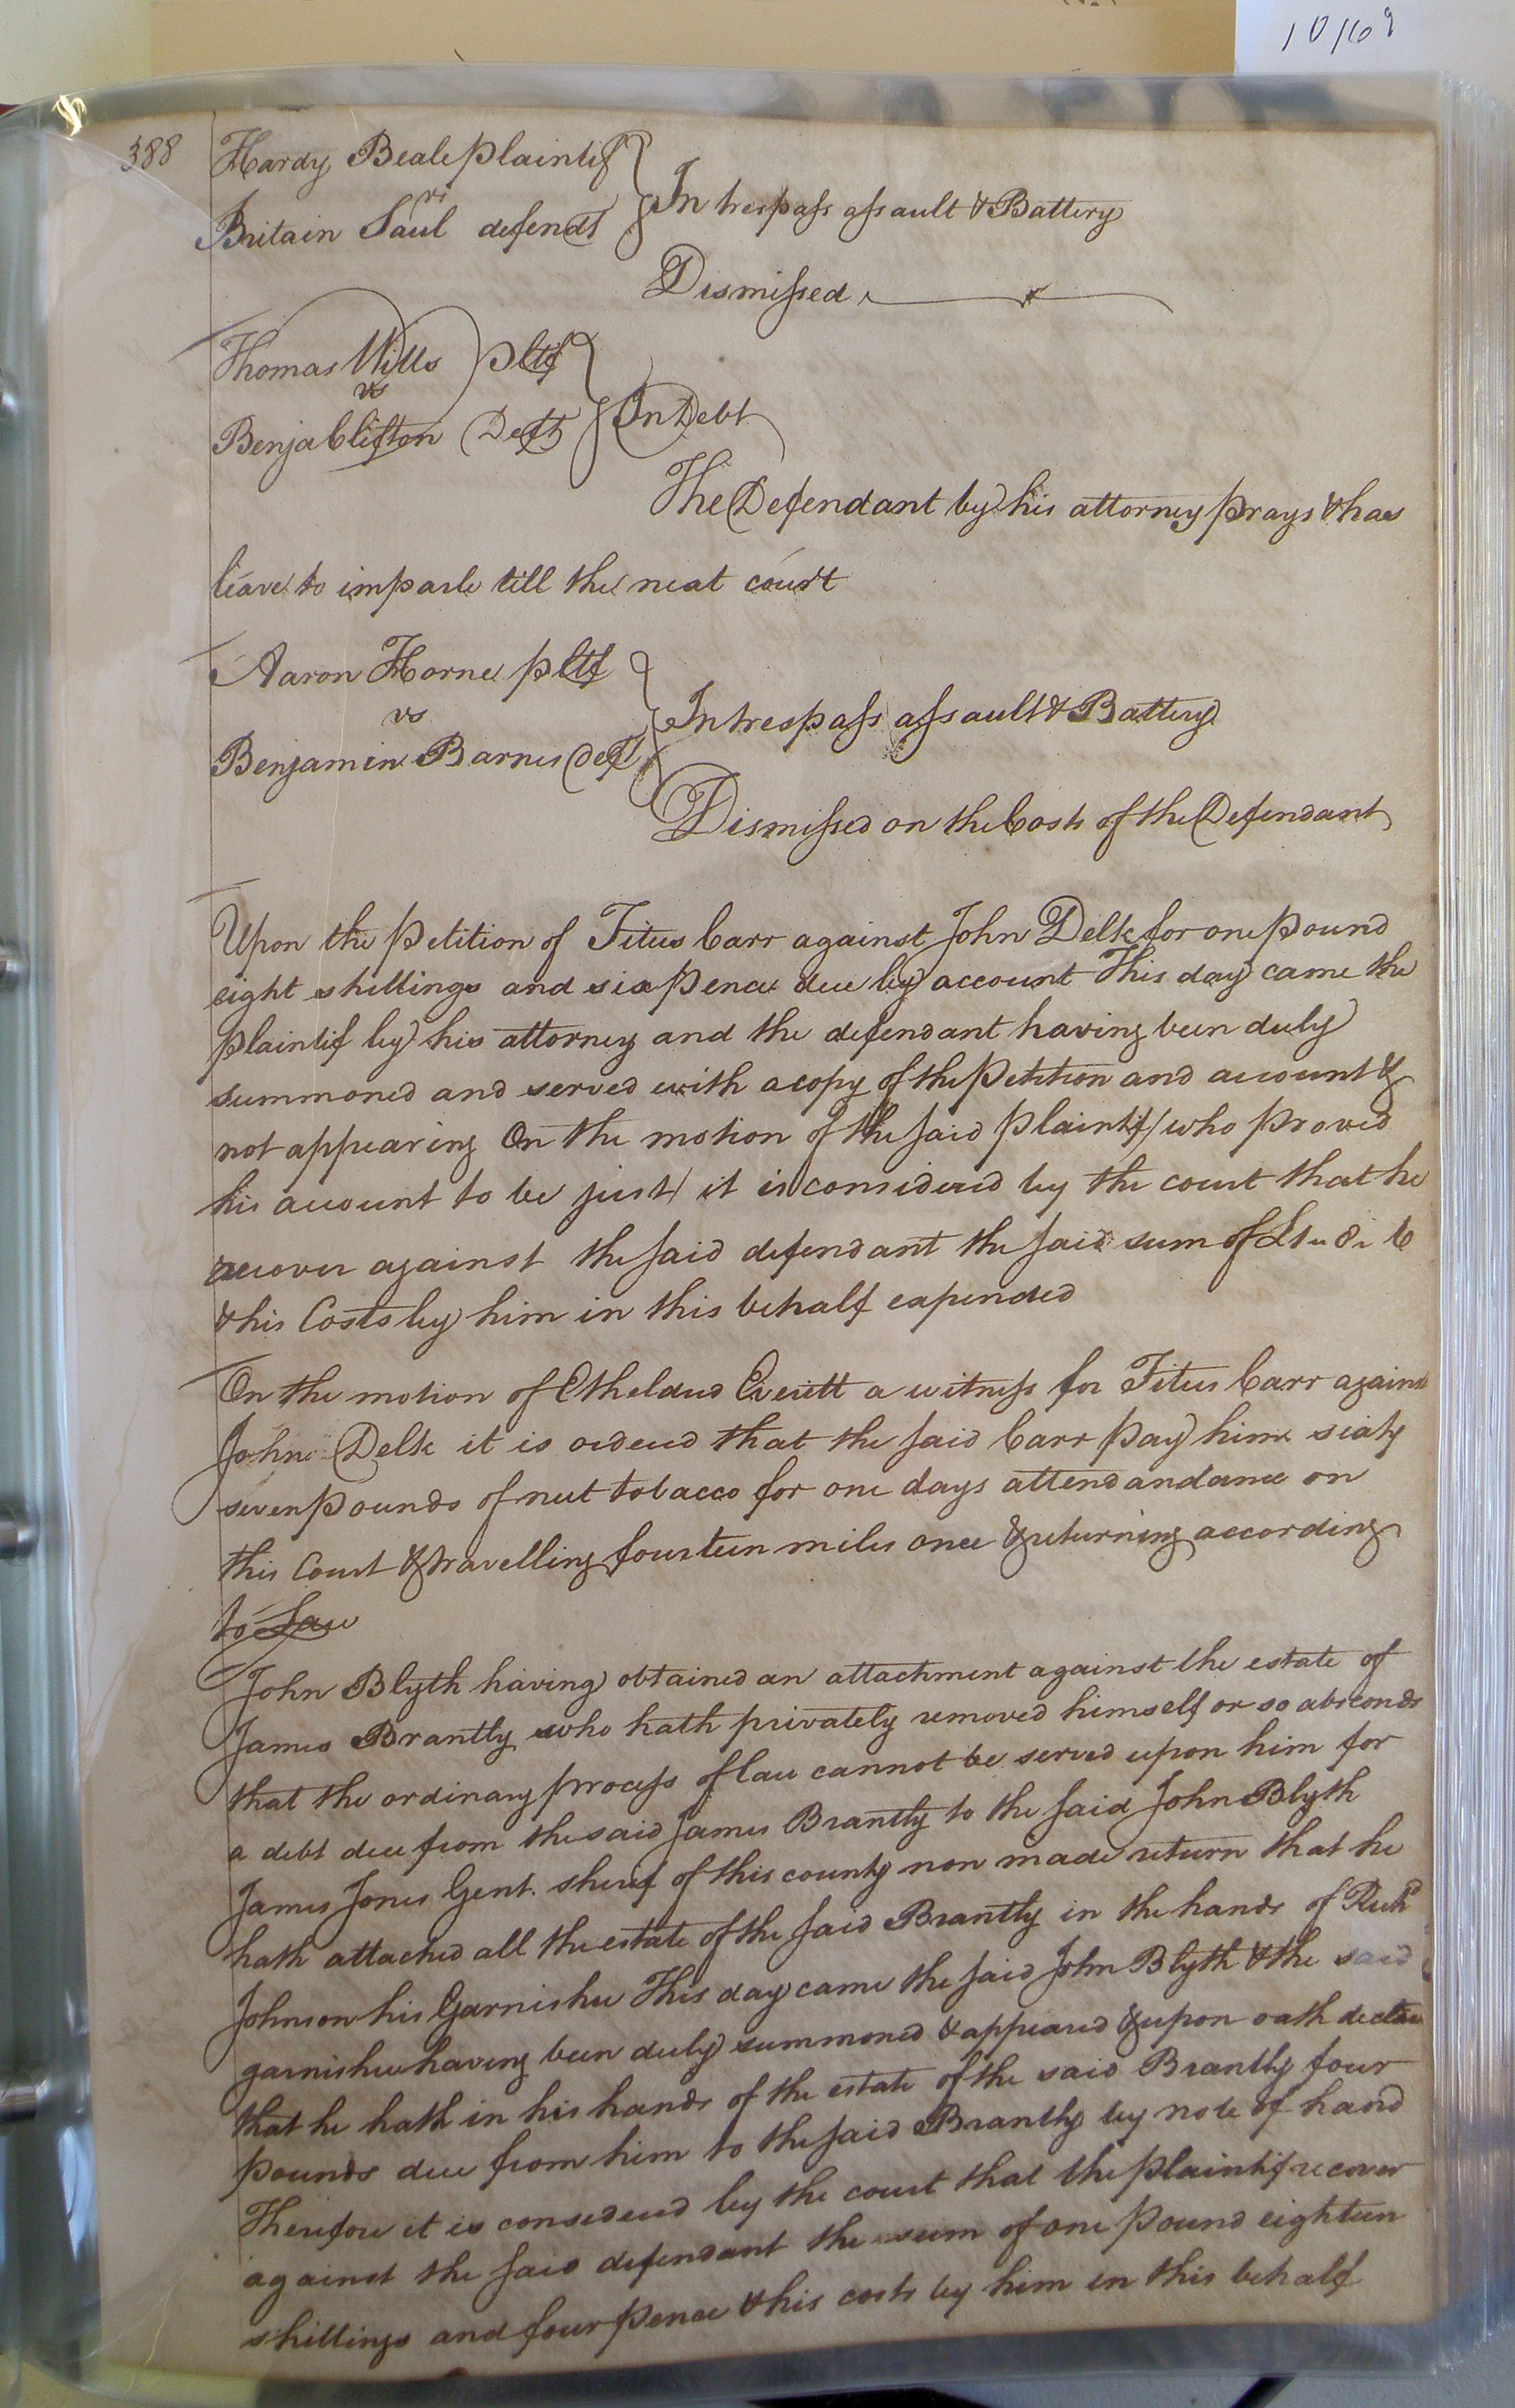 10169
388
Hardy Beale plaintif
vs
Britain Saul defendt
In trespass assault & Battery
Dismissed
Thomas Wills pltf
vs
Benja Clifton Deft
In Debt
The Defendant by his attorney prays & has
leave to imparle till the next court
Aaron Horne pltf
vs
Benjamin Barnes deft
In trespass assault & Battery
Dismissed on the Costs of the Defendant
Upon the petition of Titus Carr against John Delk for one pound
eight shillings and six pence due by account This day came the
plaintif by his attorney and the defendant having been duly
summoned and served with a copy of the petition and account &
not appearing On the motion of the said plaintif / who proved
his account to be just / it is considered by the court that he
recover against the said defendant the said sum of £1 " 8 " 6
& his Costs by him in this behalf expended
On the motion of Etheldred Everitt a witness for Titus Carr against
John Delk it is ordered that the said Carr pay him sixty
seven pounds of net tobacco for one days attendandance on
this Court & travelling fourteen miles once & returning according
to Law
John Blyth having obtained an attachment against the estate of
James Brantly who hath privately removed himself or so absconds
that the ordinary process of law cannot be served upon him for
a debt due from the said James Brantly to the said John Blyth
James Jones Gent. sherif of this county now made return that he
hath attached all the estate of the said Brantly in the hands of Richd
Johnson his Garnishee This day came the said John Blyth & the said
garnishee having been duly summoned & appeared & upon oath declar
that he hath in his hands of the estate of the said Brantly four
pounds due from him to the said Brantly by note of hand
Therefore it is considered by the court that the plaintif recover
against the said defendant the sum of one pound eighteen
shillings and four pence & his costs by him in this behalf